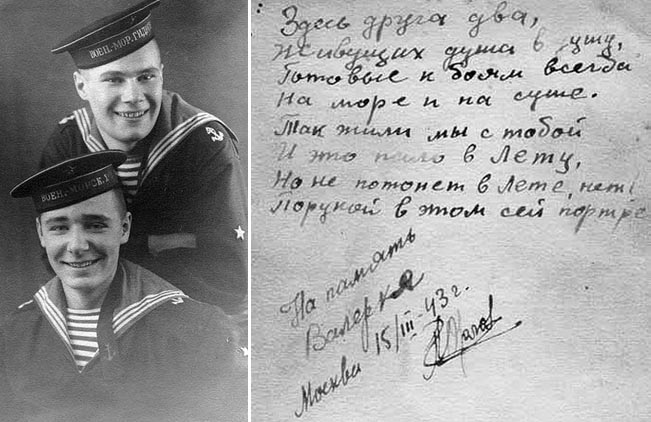 ВОЕН-МОР. ГИДР
ВОЕН-МОРСК.
Здесь друга два,
Живущих душа в душу,
Готовые к боям всегда
На море и на суше.
Так жили мы с тобой
И это кало в Лету,
Но не потонет в Лете, нет!
Порукой в этом сей портре
На память
Валерка
Москва 15/III-43г.